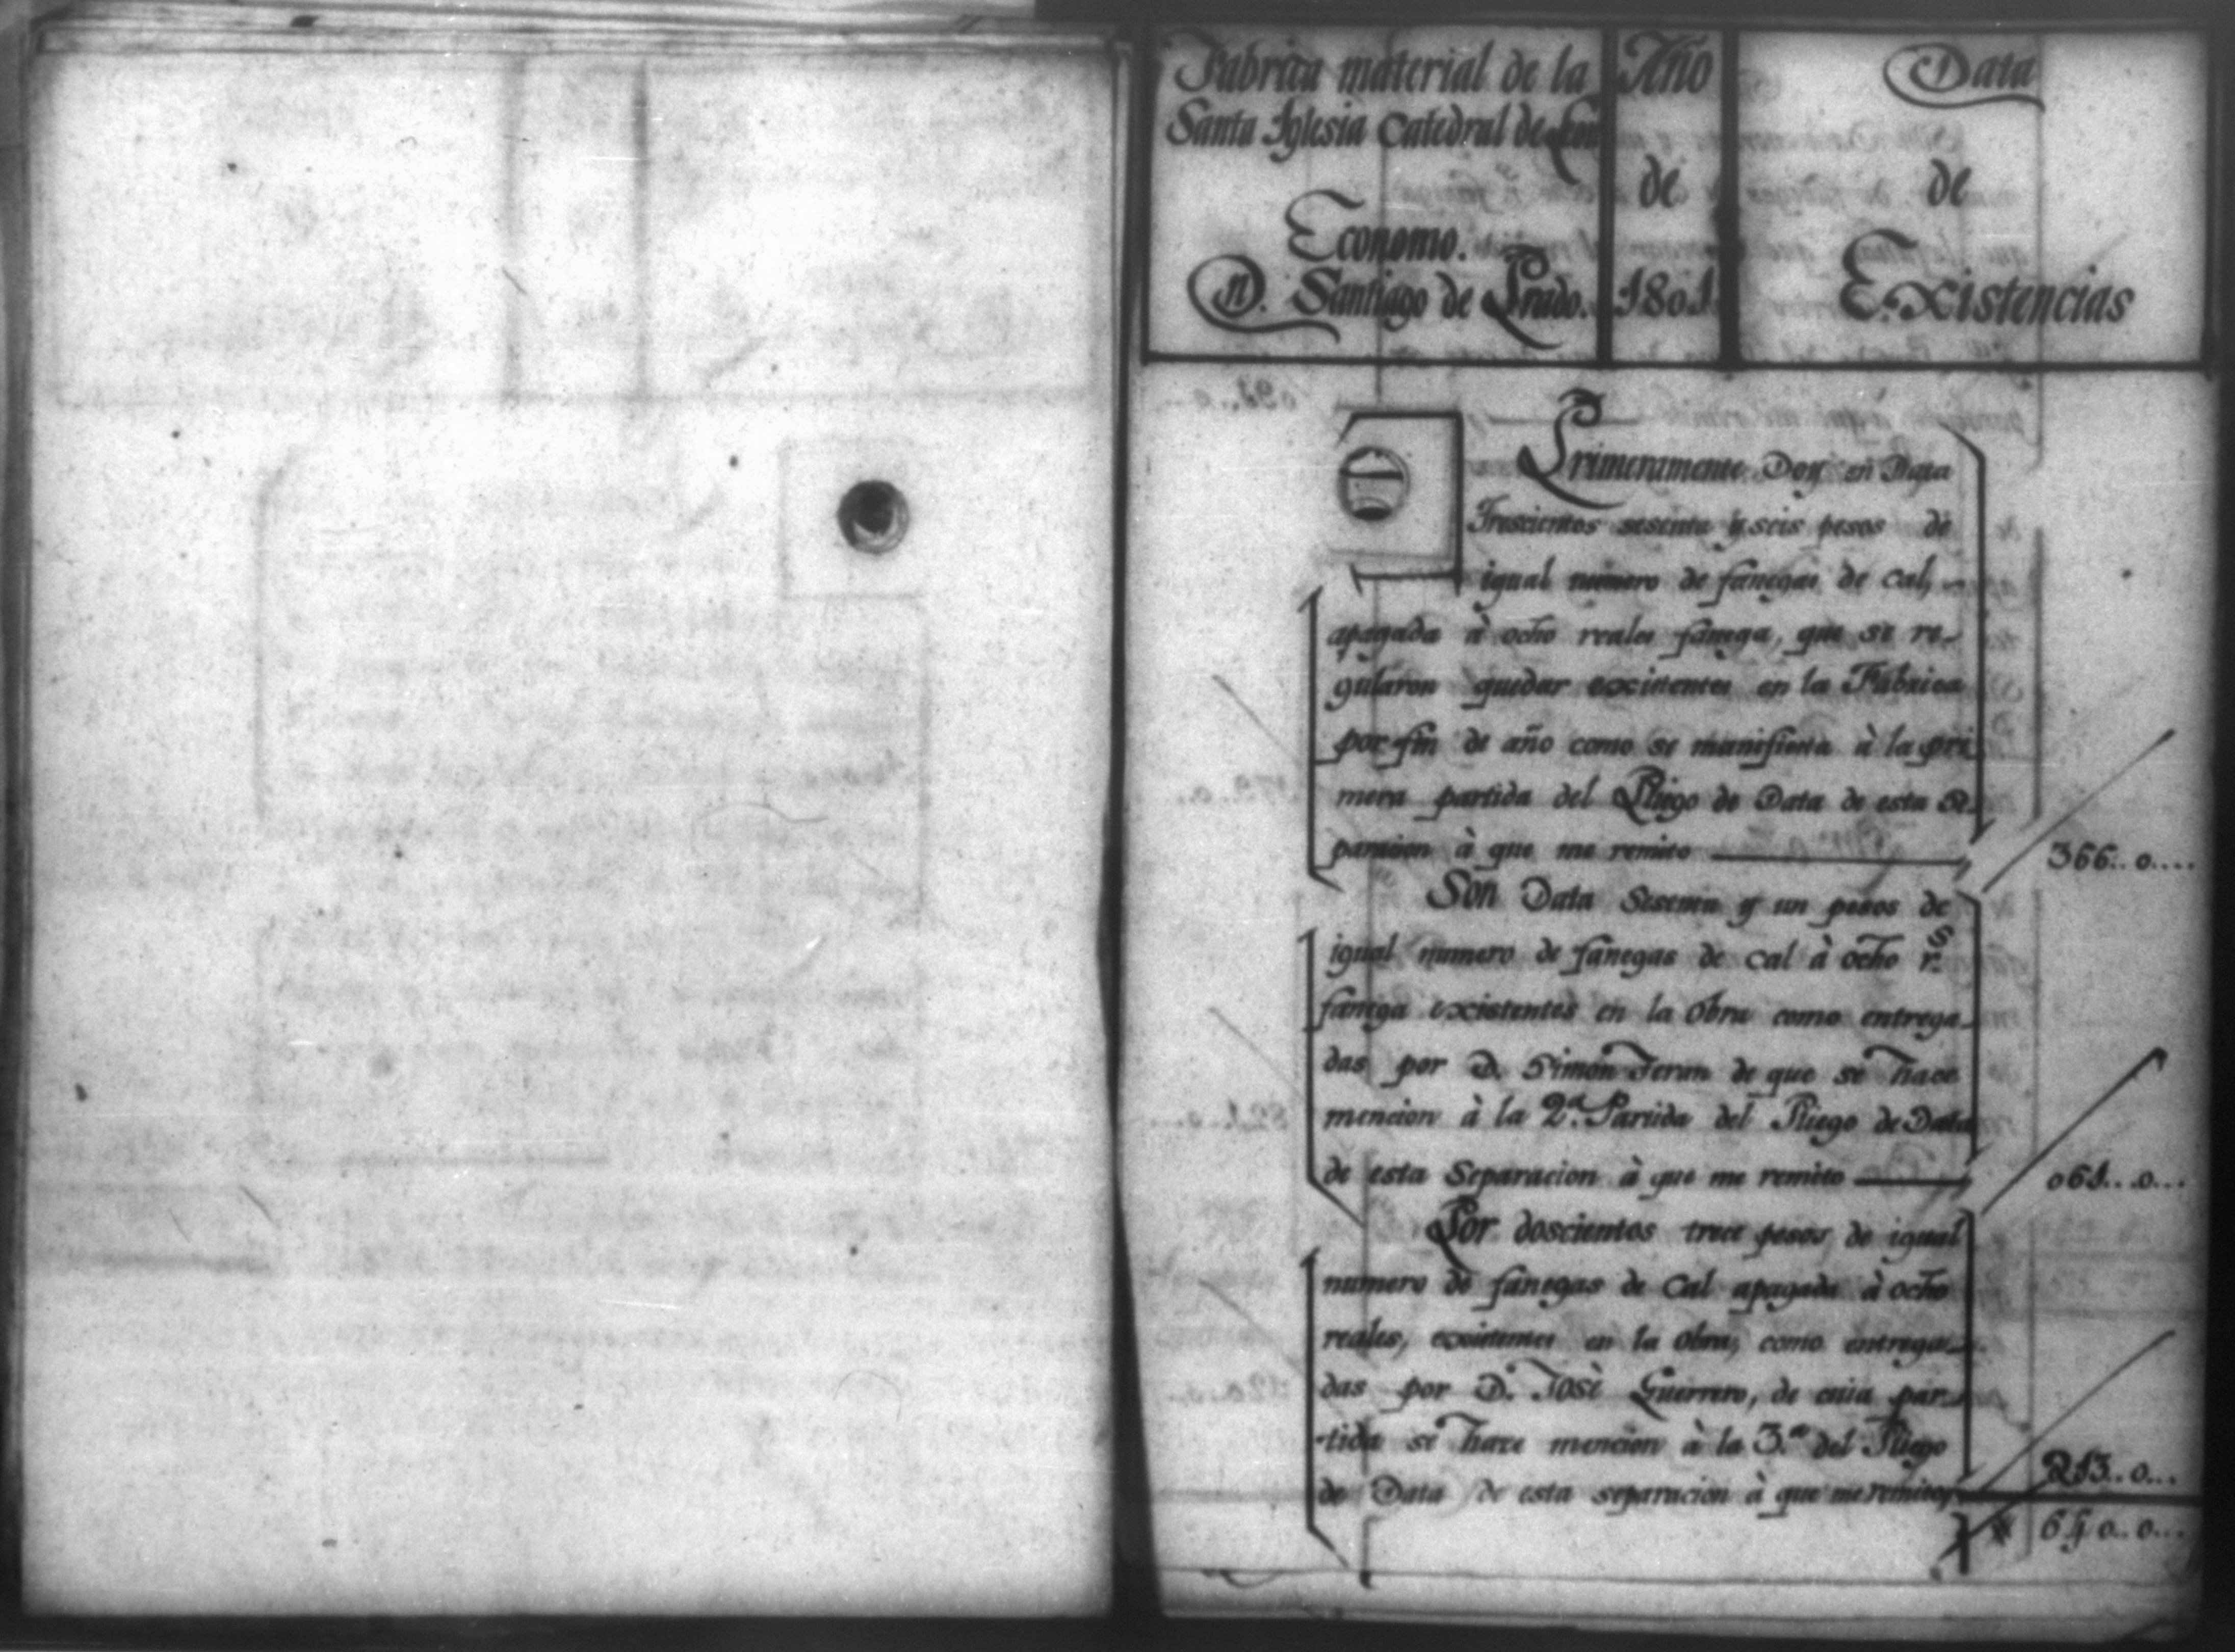 Fabrica material de la
Santa Iglesia Catedral de Leon
Economo.
D. Santiago de Prado.
Año
de
1801
Data
de
Existencias
Primeramente Doy en Data
Trescientos sesenta y seis pesos de
igual numero de fanegas de cal,
apagada à ocho reales fanega, que se re-
gularon quedar existentes en la Fabrica
por fin de año como se manifiesta à la pri
mera partida del Pliego de Data de esta Se
paracion à que me remito
366..0....
Son Data Sesenta y un pesos de
igual numero de fanegas de cal à ocho r.s
fanega existentes en la obra como entrega-
das por D. Simon Teran de que se hace
mencion à la 2.a Partida del Pliego de Data
de esta Separacion à que me remito
061...0...
Por doscientos trece pesos de igual
numero de fanegas de Cal apagada à ocho
reales, existentes en la obra, como entrega-
das por D. Josè Guerrero, de cuia par-
tida se hace mencion à la 3.a del Pliego
de Data de esta separacion à que me remito
213..0...
640..0...